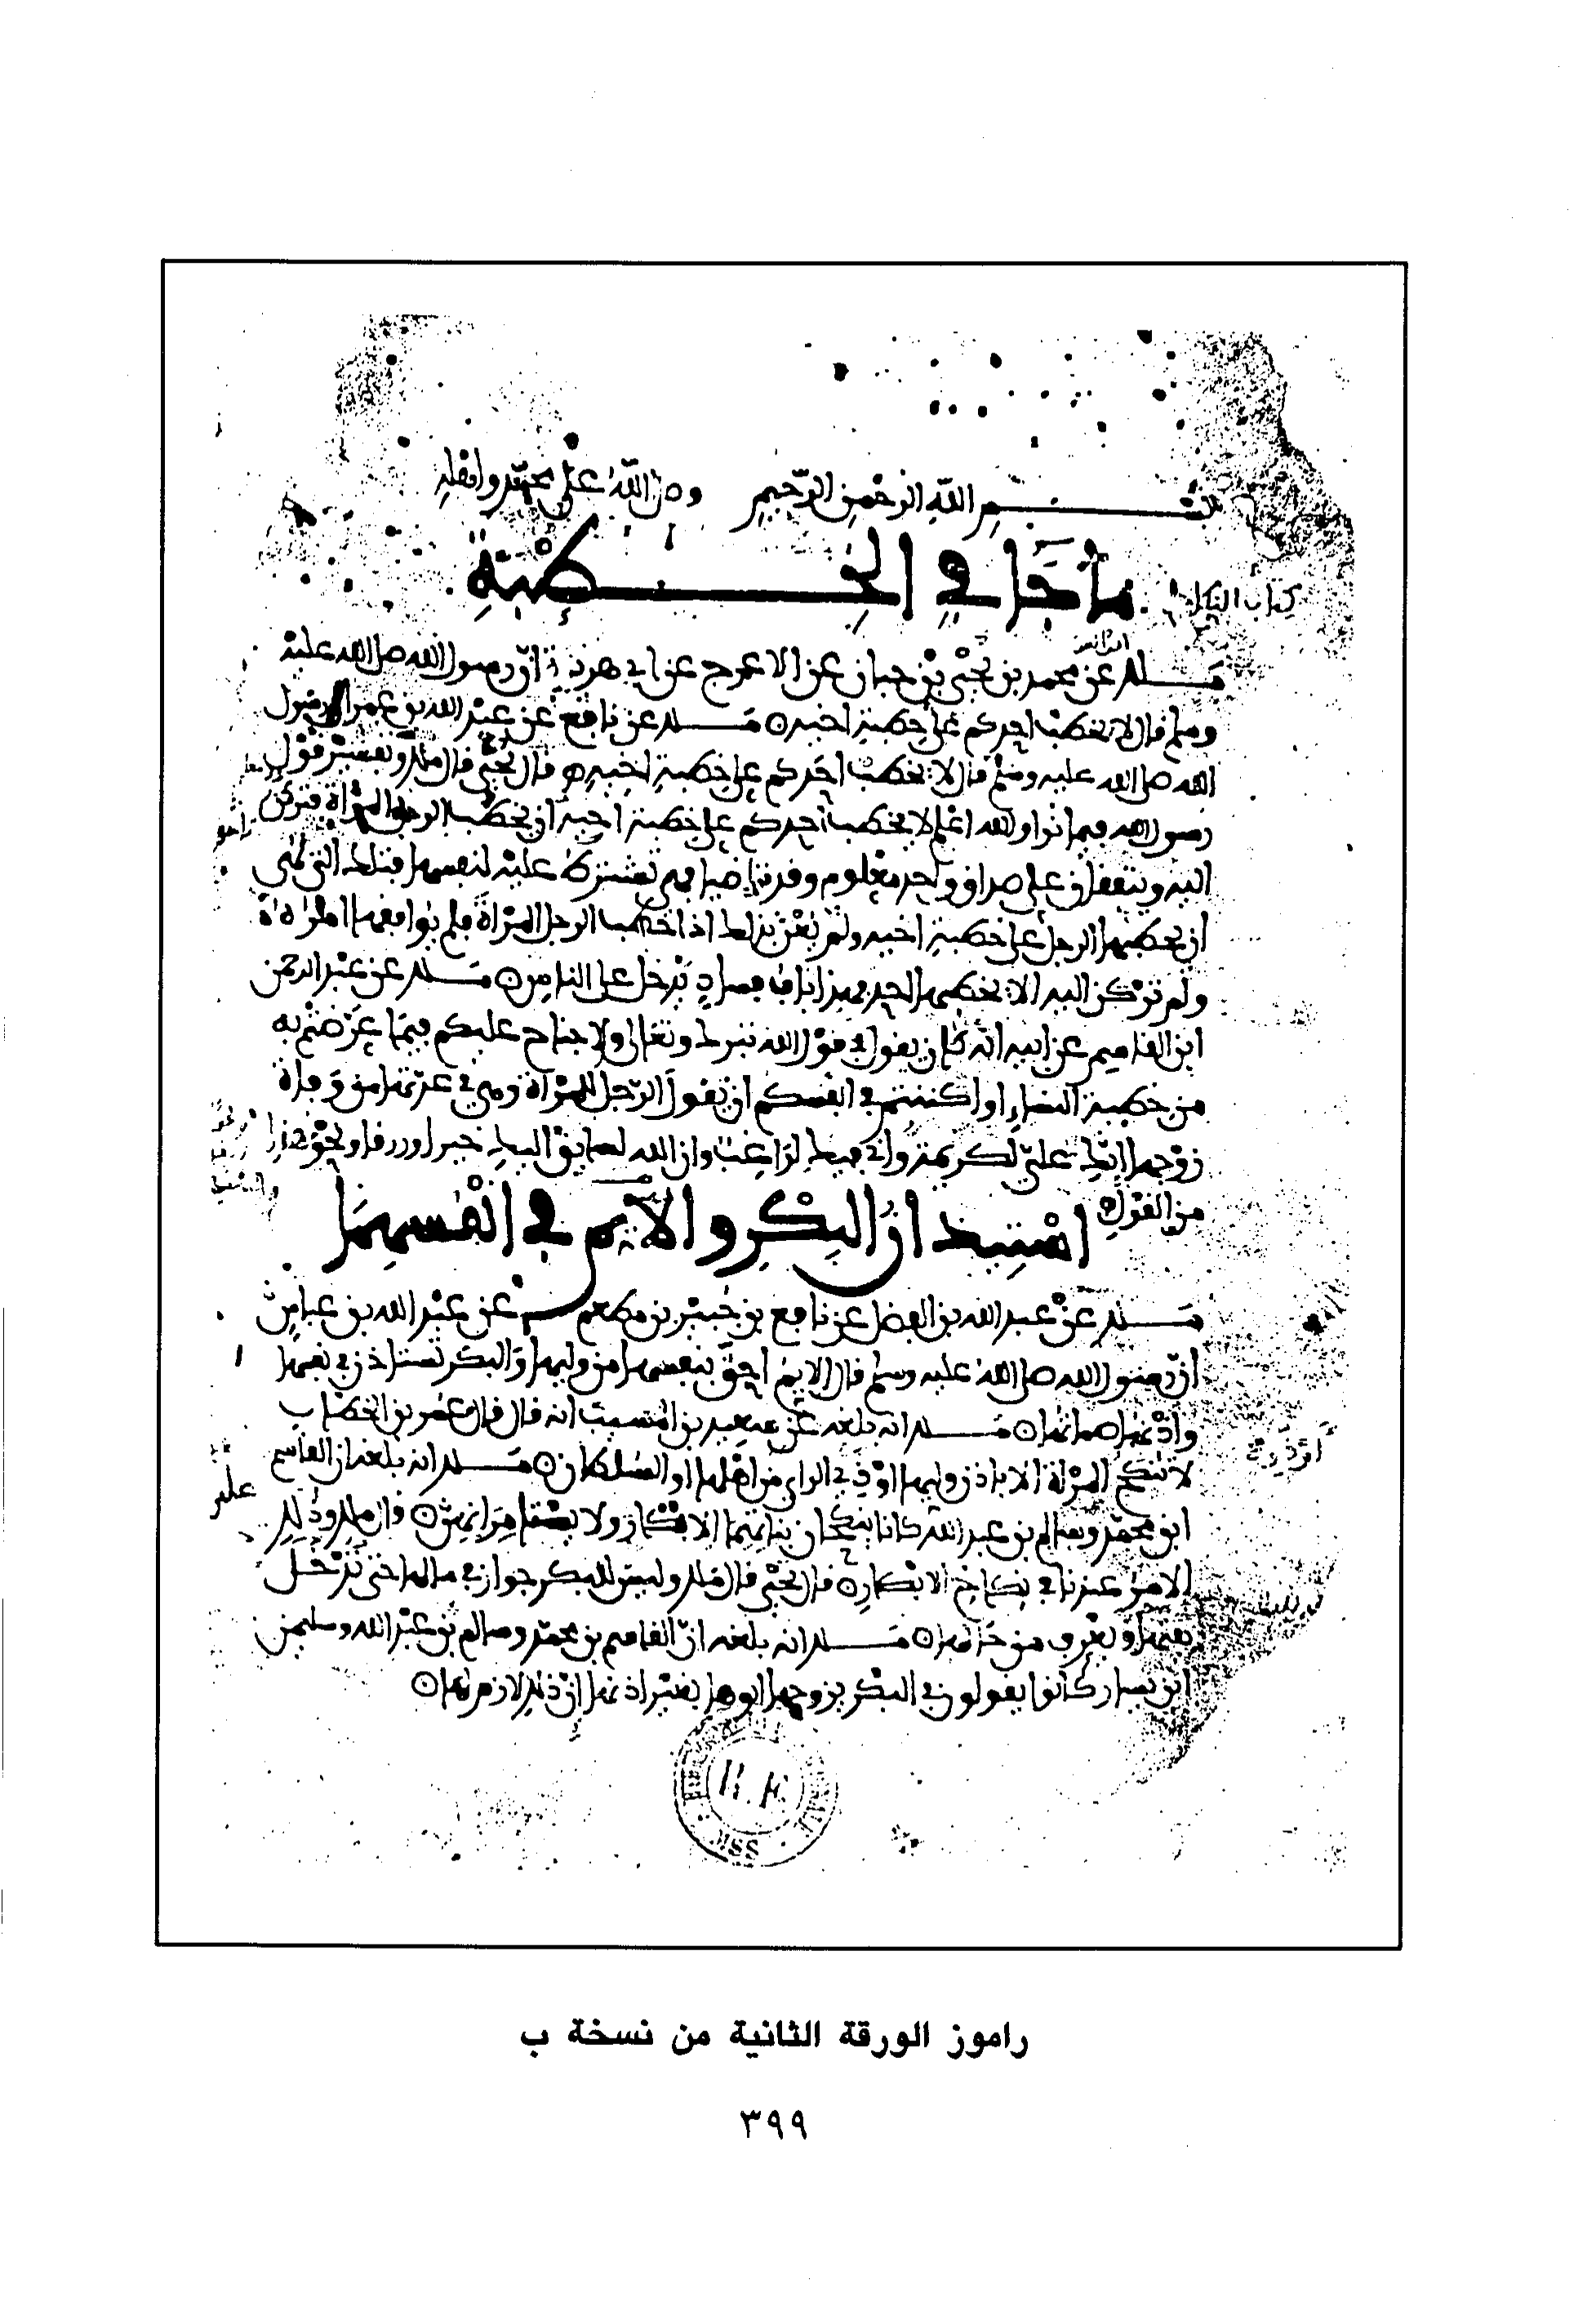 بسم الله الرحمن الرحيم وصلى الله على محمد واهله
ما جا في الخطبة
كتاب النكاح
ملك عن محمد بن يحيى بن حبان عن الاعرج عن ابي هريرة ان رسول الله صلى الله عليه
وسلم قال لا يخطب احدكم على خطبة اخيه ملك عن نافع عن عبد الله بن عمر ان رسول
الله صلى الله عليه وسلم قال لا يخطب احدكم على خطبة اخيه قال يحيى قال ملك وتفسير قول
رسول الله فيما نرا والله اعلم لا يخطب احدكم على خطبة اخيه ان يخطب الرجل المراة فتركن
اليه ويتفقان على صداق واحد معلوم وقد تراضيا فهي تشترط عليه لنفسها فتلك التي نهى
ان يخطبها الرجل على خطبة اخيه ولم يعن بذلك اذا خطب الرجل المراة فلم يوافقها امره
ولم تركن اليه الا يخطبها احد فهذا باب فساد يدخل على الناس ملك عن عبد الرحمن
ابن القاسم عن ابيه انه كان يقول في قول الله تبرك وتعالى ولا جناح عليكم فيما عرضتم به
من خطبة النساء او اكننتم في انفسكم ان يقول الرجل للمراة وهي في عدتها من وفاة
زوجها انك علي لكريمة واني فيك لراغب وان الله لسايق اليك خيرا ورزقا ونحو هذا
من القول
استيذان البكر والايم في انفسهما
ملك عن عبد الله بن الفضل عن نافع بن جبير بن مطعم عن عبد الله بن عباس
ان رسول الله صلى الله عليه وسلم قال الايم احق بنفسها من وليها والبكر تستاذن في نفسها
واذنها صماتها ملك انه بلغه عن سعيد بن المسيب انه قال قال عمر بن الخطاب
لا تنكح المراة الا باذن وليها او ذي الراي من اهلها او السلطان ملك انه بلغه ان القاسم
ابن محمد وسالم بن عبد الله كانا ينكحان بناتهما الابكار ولا يستامرانهن قال ملك وذلك
الامر عندنا في نكاح الابكار قال يحيى قال ملك وليس للبكر جواز في مالها حتى تدخل
بيتها ويعرف من حالها ملك انه بلغه ان القاسم بن محمد وسالم بن عبد الله وسليمن
ابن يسار كانوا يقولون في البكر يزوجها ابوها بغير اذنها ان ذلك لازم لها
راموز الورقة الثانية من نسخة ب
٣٩٩